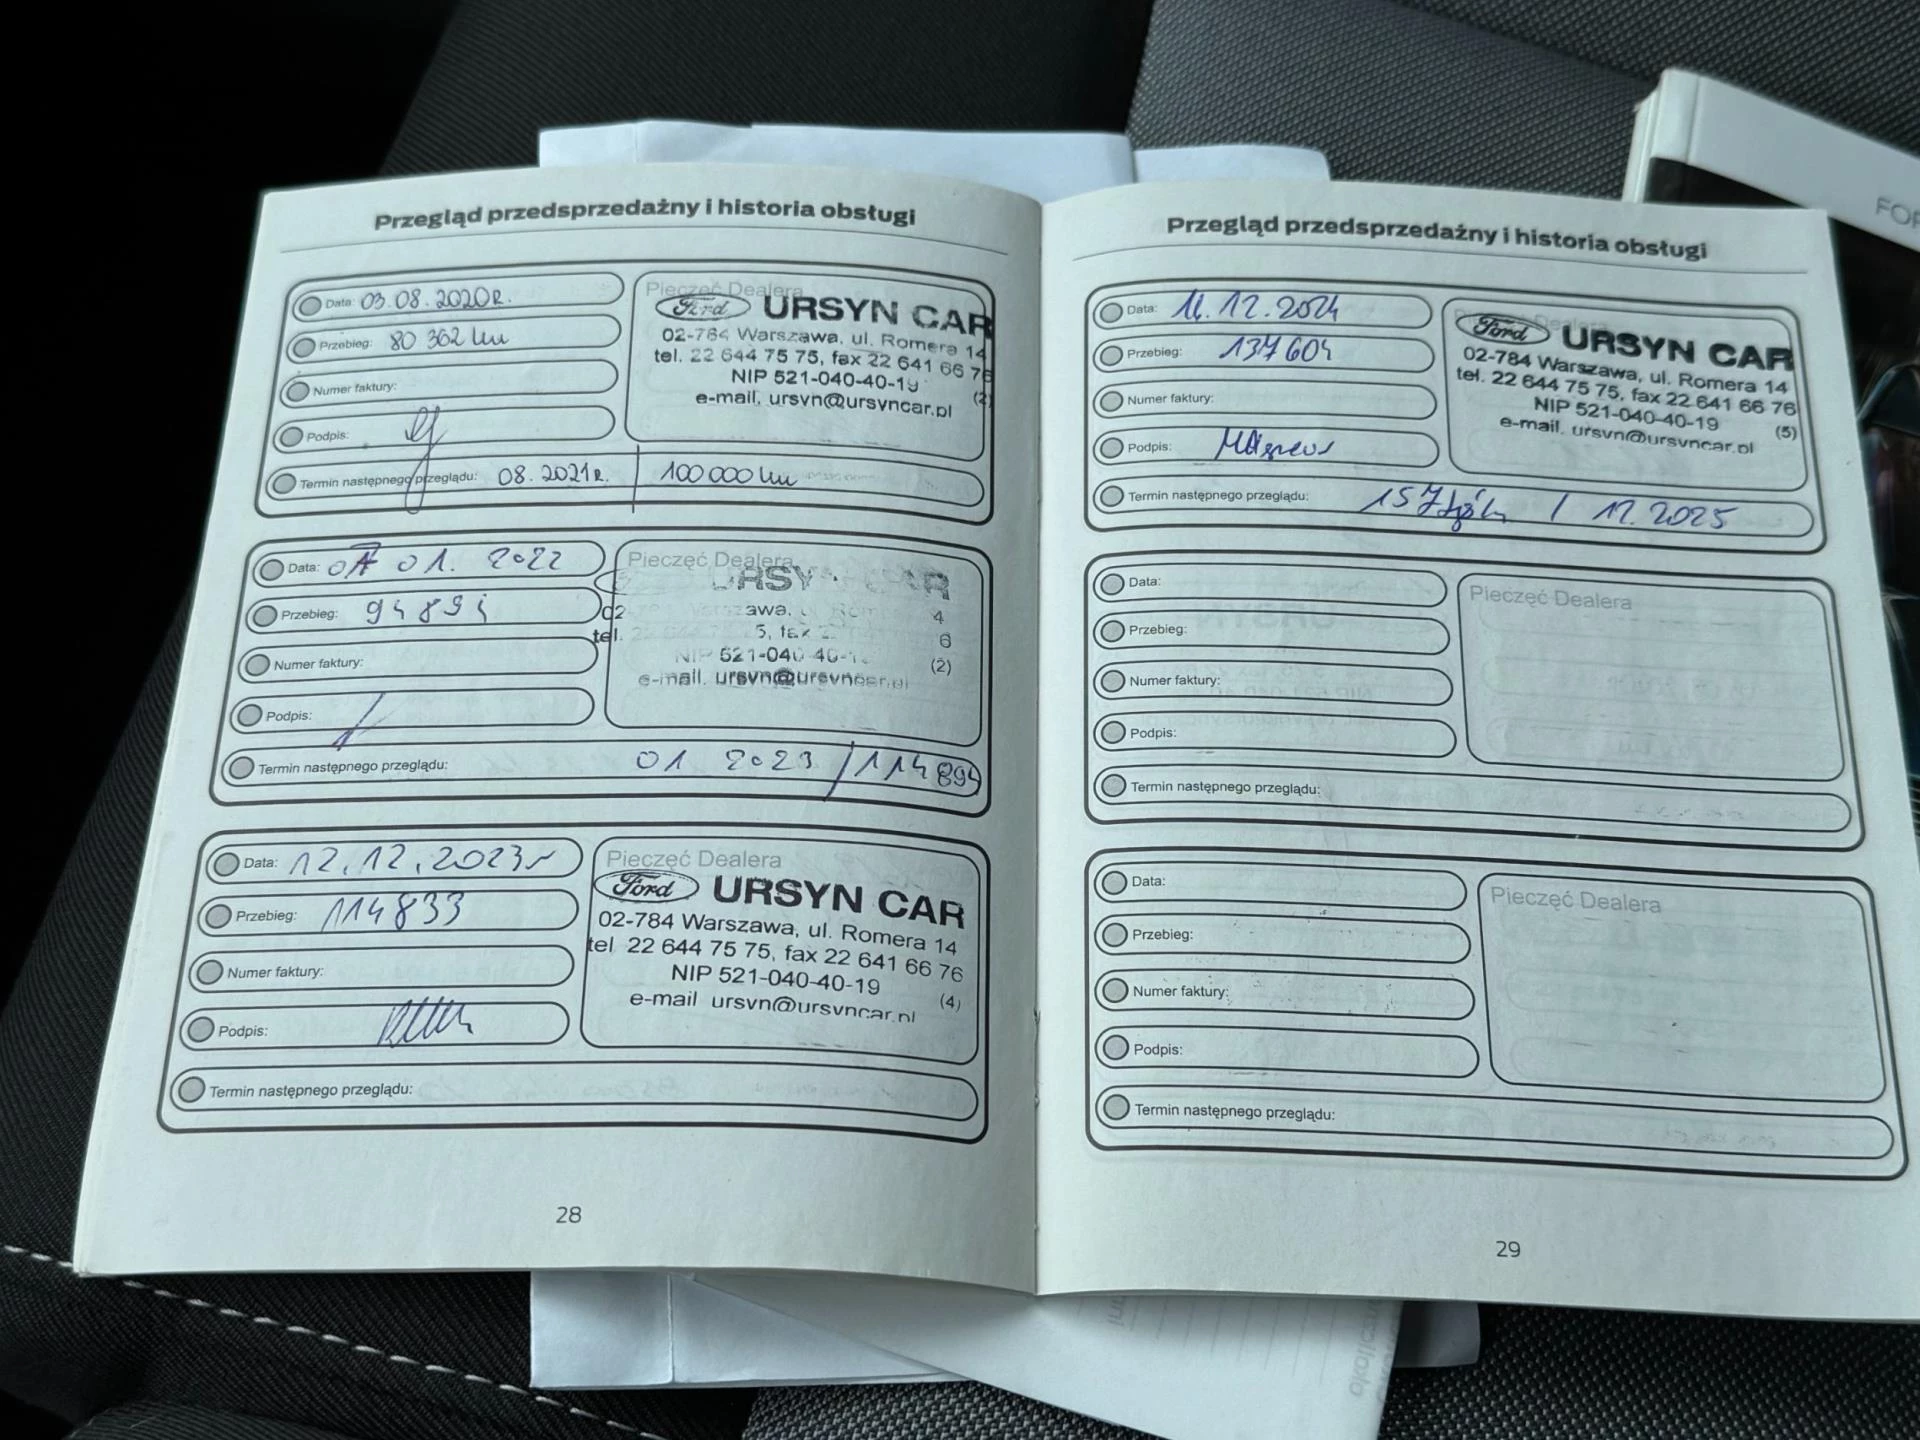 Przegląd przedsprzedażny i historia obsługi
Data: 03.08.2020r.
Przebieg: 80 362 km
Numer faktury:
Podpis:
Termin następnego przeglądu: 08.2021r. | 100 000 km
Pieczęć Dealera
Ford URSYN CAR
02-784 Warszawa, ul. Romera 14
tel. 22 644 75 75, fax 22 641 66 76
NIP 521-040-40-19
e-mail. ursyn@ursyncar.pl
(2)
Data: 07 01. 2022
Przebieg: 94894
Numer faktury:
Podpis:
Termin następnego przeglądu: 01 2023 / 114 894
Pieczęć Dealera
URSYN CAR
02- Warszawa, 4
tel. 22 644 5, fax 6
NIP 521-040 40-1 (2)
e-mail. ursyn@ursyncar.pl
Data: 12.12.2023r
Przebieg: 114833
Numer faktury:
Podpis:
Termin następnego przeglądu:
Pieczęć Dealera
Ford URSYN CAR
02-784 Warszawa, ul. Romera 14
tel 22 644 75 75, fax 22 641 66 76
NIP 521-040-40-19
e-mail ursyn@ursyncar.pl
(4)
28
Przegląd przedsprzedażny i historia obsługi
Data: 12.2024
Przebieg: 137604
Numer faktury:
Podpis:
Termin następnego przeglądu: 157 / 12.2025
Ford URSYN CAR
02-784 Warszawa, ul. Romera 14
tel. 22 644 75 75, fax 22 641 66 76
NIP 521-040-40-19
e-mail. ursyn@ursyncar.pl
(5)
Data:
Przebieg:
Numer faktury:
Podpis:
Termin następnego przeglądu:
Pieczęć Dealera
Data:
Przebieg:
Numer faktury:
Podpis:
Termin następnego przeglądu:
Pieczęć Dealera
29
FOR